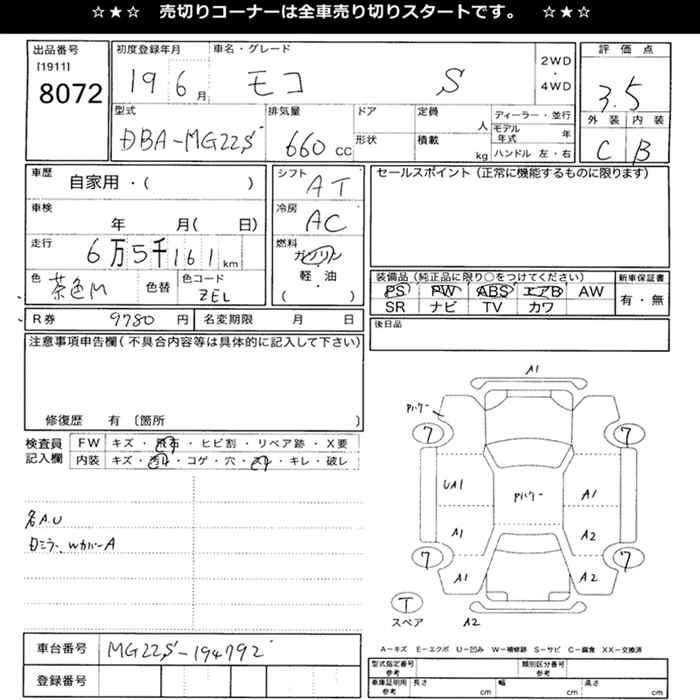 ☆★☆ 売切りコーナーは全車売り切りスタートです。 ☆★☆
出品番号 [1911] 8072
初度登録年月 19 6月
車名・グレード モコ S
2WD・4WD
評価点 3.5
外装 C 内装 B
型式 DBA-MG22S
排気量 660 cc
ドア 形状
定員 人 積載 kg
ディーラー・並行
モデル年式 年
ハンドル 左・右
車歴 自家用・( )
車検 年 月( 日)
走行 6万5千161km
色 茶色M 色替 色コード ZEL
シフト AT
冷房 AC
燃料 ガソリン 軽・油 ( )
セールスポイント(正常に機能するものに限ります)
装備品(純正品に限り○をつけてください) 新車保証書
PS PW ABS エアB AW 有・無
SR ナビ TV カワ
R券 9780円 名変期限 月 日
後日品
注意事項申告欄(不具合内容等は具体的に記入して下さい)
修復歴 有 〔箇所 〕
検査員記入欄
FW キズ・飛石・ヒビ割・リペア跡・X要
内装 キズ・汚れ・コゲ・穴・スレ・キレ・破レ
各A.U
Dミラー、WカバーA
A1
Pハゲー
7 7
UA1 Pハゲー A1
A1 A2
7 7
A1 A2
T
スペア A2
車台番号 MG22S-194792
登録番号
A-キズ E-エクボ U-凹み W-補修跡 S-サビ C-腐食 XX-交換済
型式指定番号 参考 類別区分番号 参考
車庫証明用 参考 長さ cm 幅 cm 高さ cm